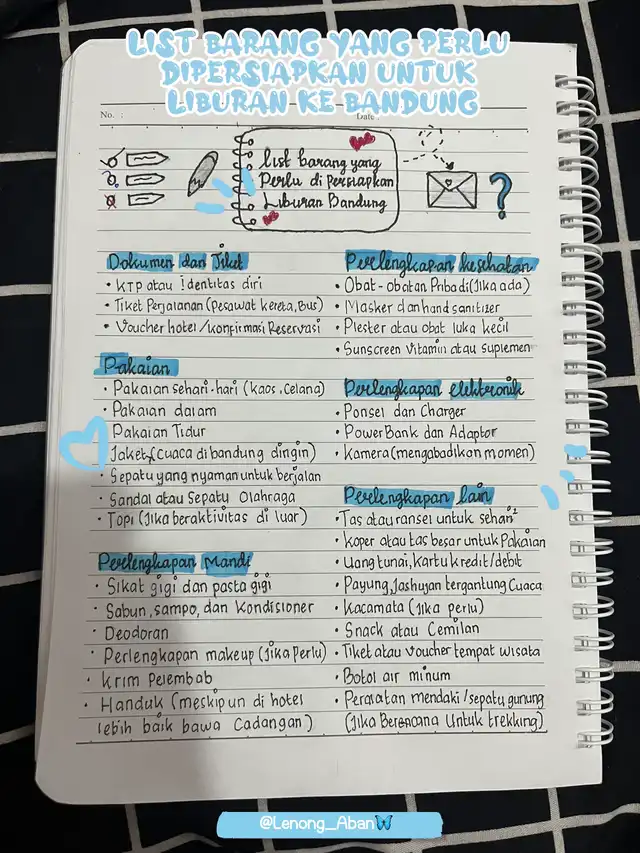 LIST BARANG YANG PERLU
DIPERSIAPKAN UNTUK
LIBURAN KE BANDUNG
No. :
Date :
List barang yang
Perlu di Persiapkan
Liburan Bandung
?
Dokumen dan Tiket
• KTP atau Identitas diri
• Tiket Perjalanan (Pesawat kereta, Bus)
• Voucher hotel / konfirmasi Reservasi
Pakaian
• Pakaian sehari-hari (kaos, Celana)
• Pakaian dalam
Pakaian Tidur
Jaket (Cuaca di bandung dingin)
• Sepatu yang nyaman untuk berjalan
• Sandal atau Sepatu Olahraga
• Topi (Jika beraktivitas di luar)
Perlengkapan Mandi
• Sikat gigi dan pasta gigi
• Sabun, sampo, dan Kondisioner
• Deodoran
• Perlengkapan makeup (Jika Perlu)
• Krim Pelembab
• Handuk (meskipun di hotel
lebih baik bawa Cadangan)
Perlengkapan kesehatan
• Obat-obatan Pribadi (Jika ada)
• Masker dan hand sanitizer
• Plester atau obat luka kecil
• Sunscreen Vitamin atau suplemen
Perlengkapan elektronik
• Ponsel dan Charger
• PowerBank dan Adaptor
• Kamera (mengabadikan momen)
Perlengkapan lain
• Tas atau ransel untuk sehari²
• Koper atau tas besar untuk Pakaian
• Uang tunai, kartu kredit/debit
• Payung, Jashujan tergantung Cuaca
• Kacamata (Jika perlu)
• Snack atau Cemilan
• Tiket atau Voucher tempat wisata
• Botol air minum
• Peralatan mendaki / sepatu gunung
(Jika Berencana Untuk trekking)
@Lenong_Aban🦋